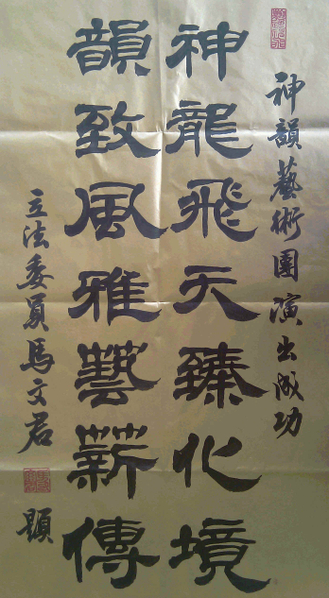 神韻藝術團演出成功
神龍飛天臻化境
韻致風雅藝薪傳
立法委員馬文君
題